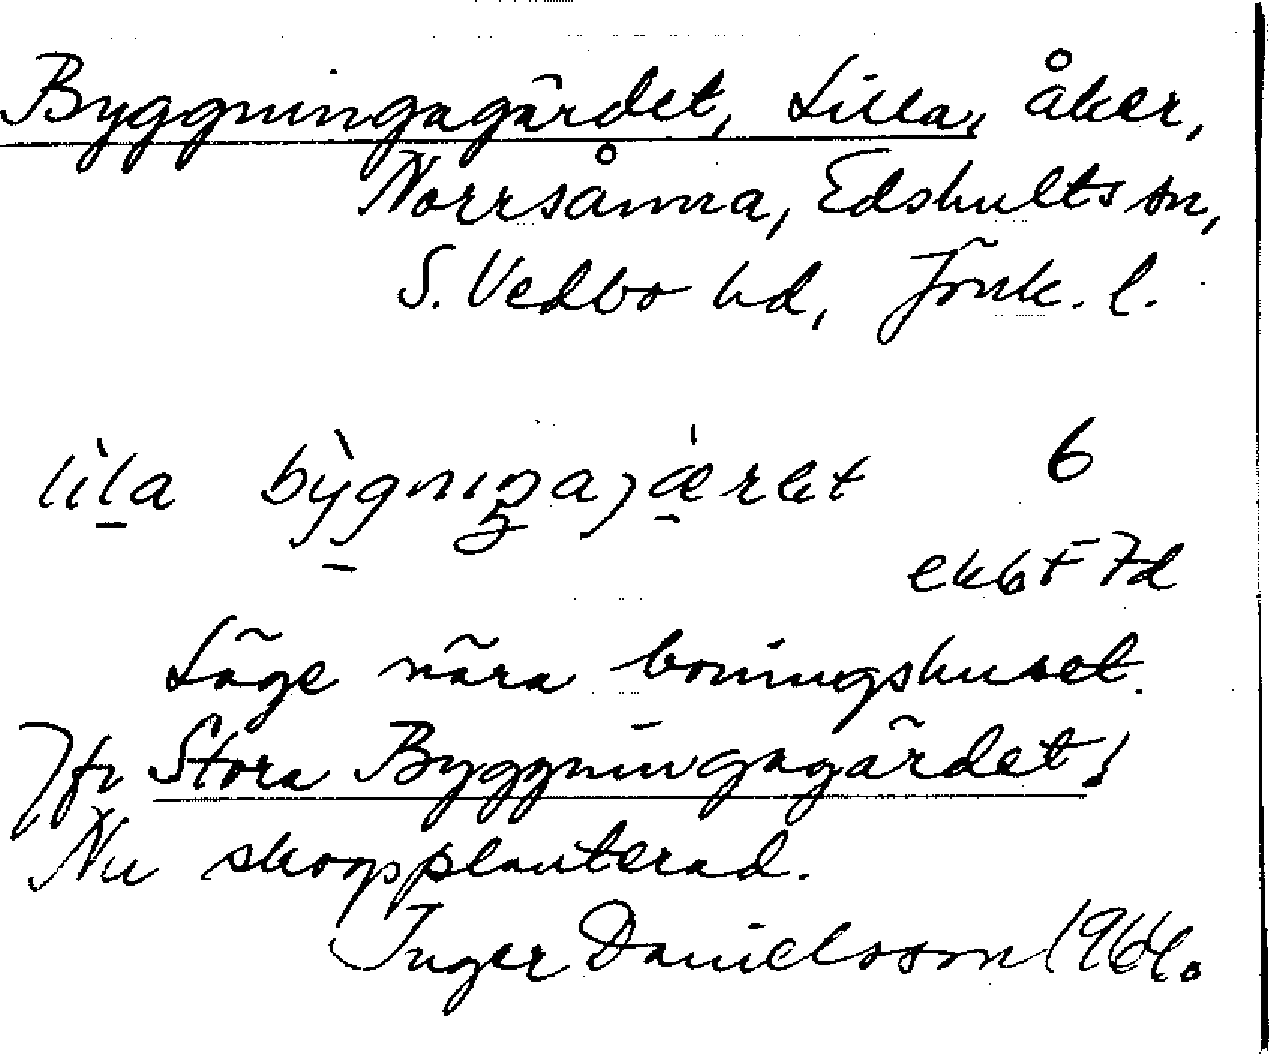 Byggningagärdet, Lilla, åker,
Norrsånna, Edshults sn,
S. Vedbo hd, Jönk. l.
lìla bỳgniŋajæ̀ret 6
ekbF 7d
Läge nära boningshuset.
Jfr Stora Byggningagärdet!
Nu skogsplanterad.
Inger Danielsson 1964.